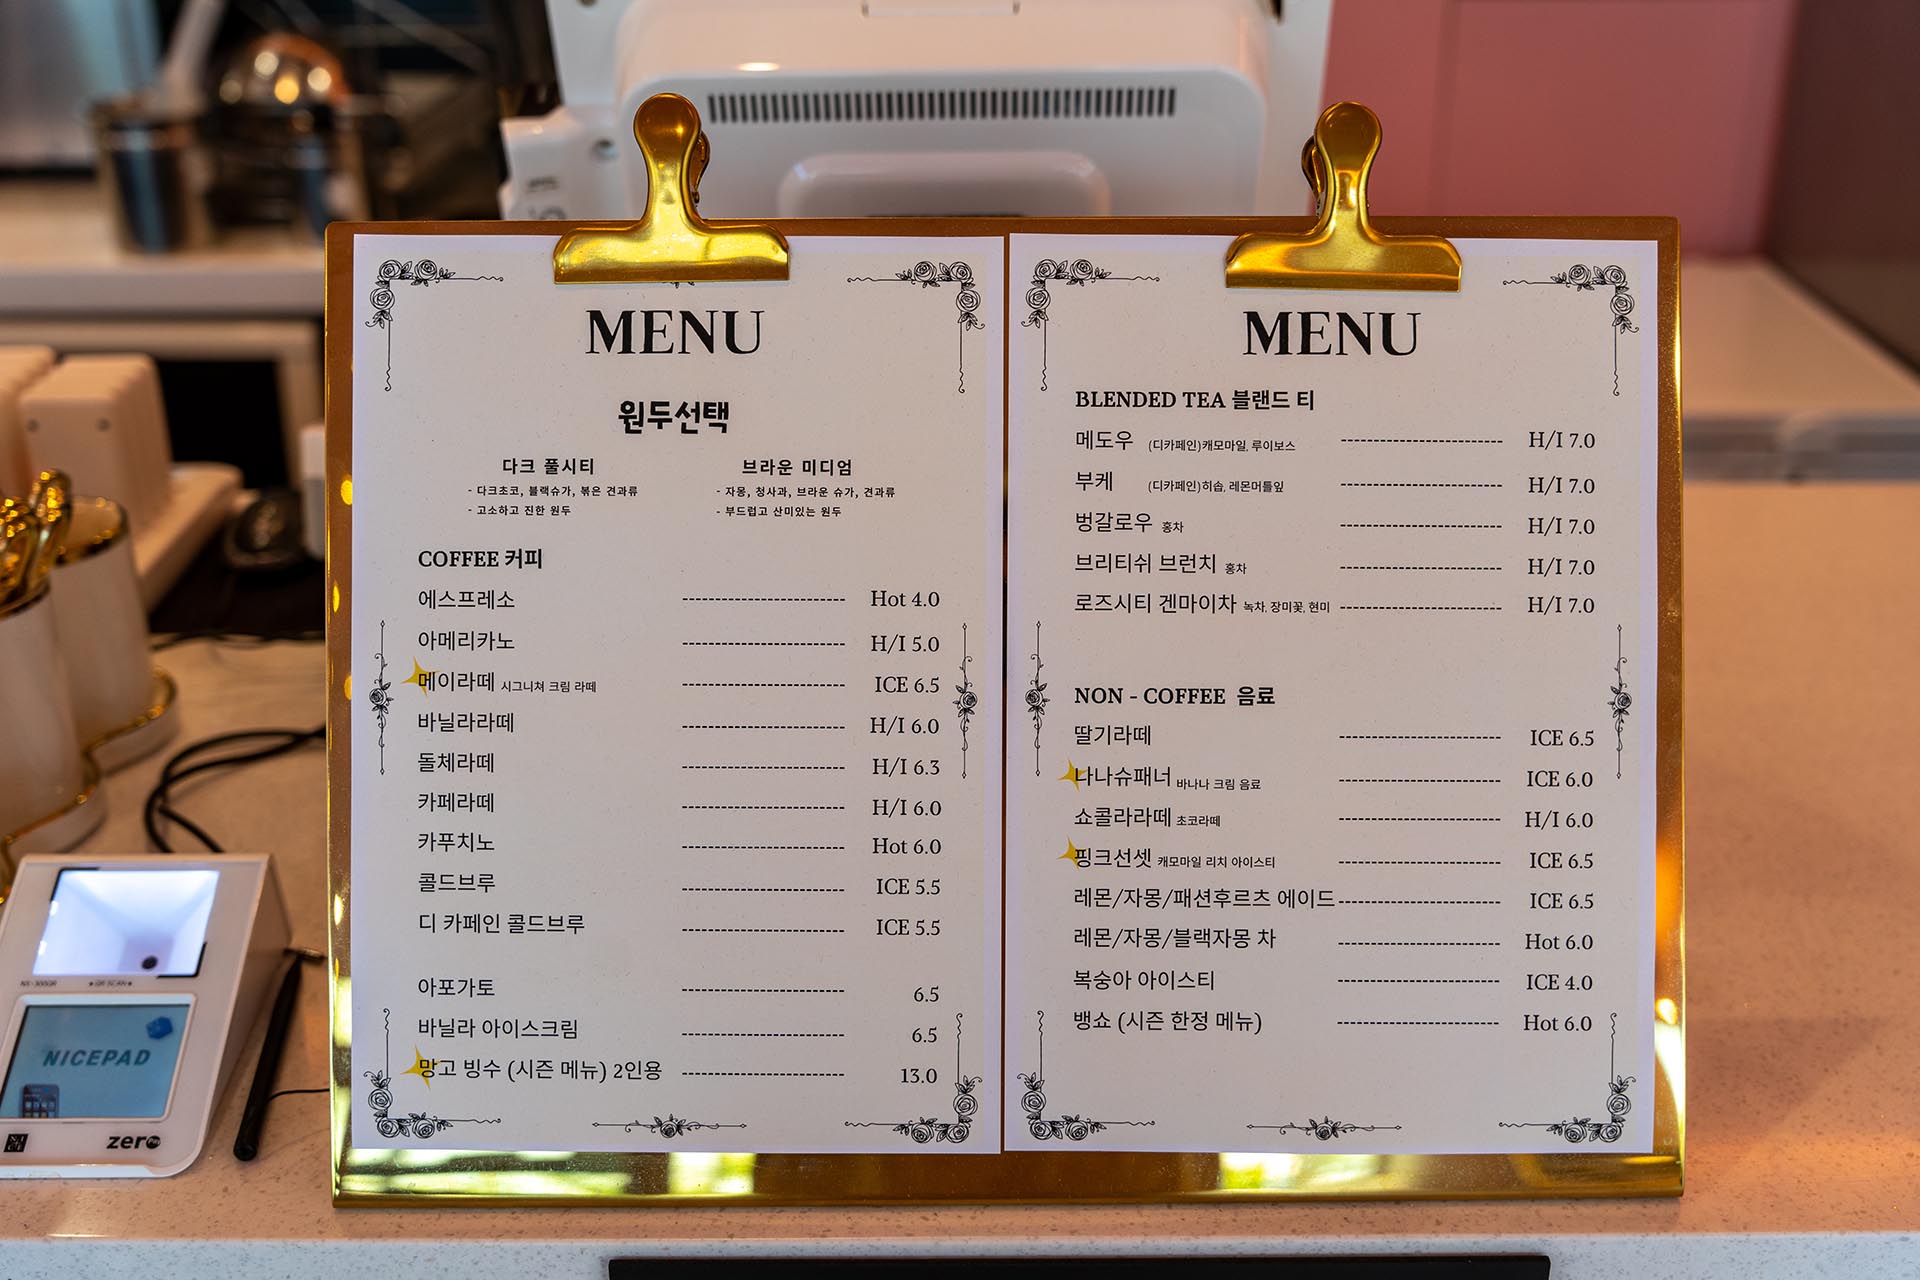 MENU
원두선택
다크 풀시티
- 다크초코, 블랙슈가, 볶은 견과류
- 고소하고 진한 원두
브라운 미디엄
- 자몽, 청사과, 브라운 슈가, 견과류
- 부드럽고 산미있는 원두
COFFEE 커피
에스프레소 Hot 4.0
아메리카노 H/I 5.0
메이라떼 시그니쳐 크림 라떼 ICE 6.5
바닐라라떼 H/I 6.0
돌체라떼 H/I 6.3
카페라떼 H/I 6.0
카푸치노 Hot 6.0
콜드브루 ICE 5.5
디 카페인 콜드브루 ICE 5.5
아포가토 6.5
바닐라 아이스크림 6.5
망고 빙수 (시즌 메뉴) 2인용 13.0
MENU
BLENDED TEA 블랜드 티
메도우 (디카페인)캐모마일, 루이보스 H/I 7.0
부케 (디카페인)히솝, 레몬머틀잎 H/I 7.0
벙갈로우 홍차 H/I 7.0
브리티쉬 브런치 홍차 H/I 7.0
로즈시티 겐마이차 녹차, 장미꽃, 현미 H/I 7.0
NON - COFFEE 음료
딸기라떼 ICE 6.5
나나슈패너 바나나 크림 음료 ICE 6.0
쇼콜라라떼 초코라떼 H/I 6.0
핑크선셋 캐모마일 리치 아이스티 ICE 6.5
레몬/자몽/패션후르츠 에이드 ICE 6.5
레몬/자몽/블랙자몽 차 Hot 6.0
복숭아 아이스티 ICE 4.0
뱅쇼 (시즌 한정 메뉴) Hot 6.0
NICEPAD
zero